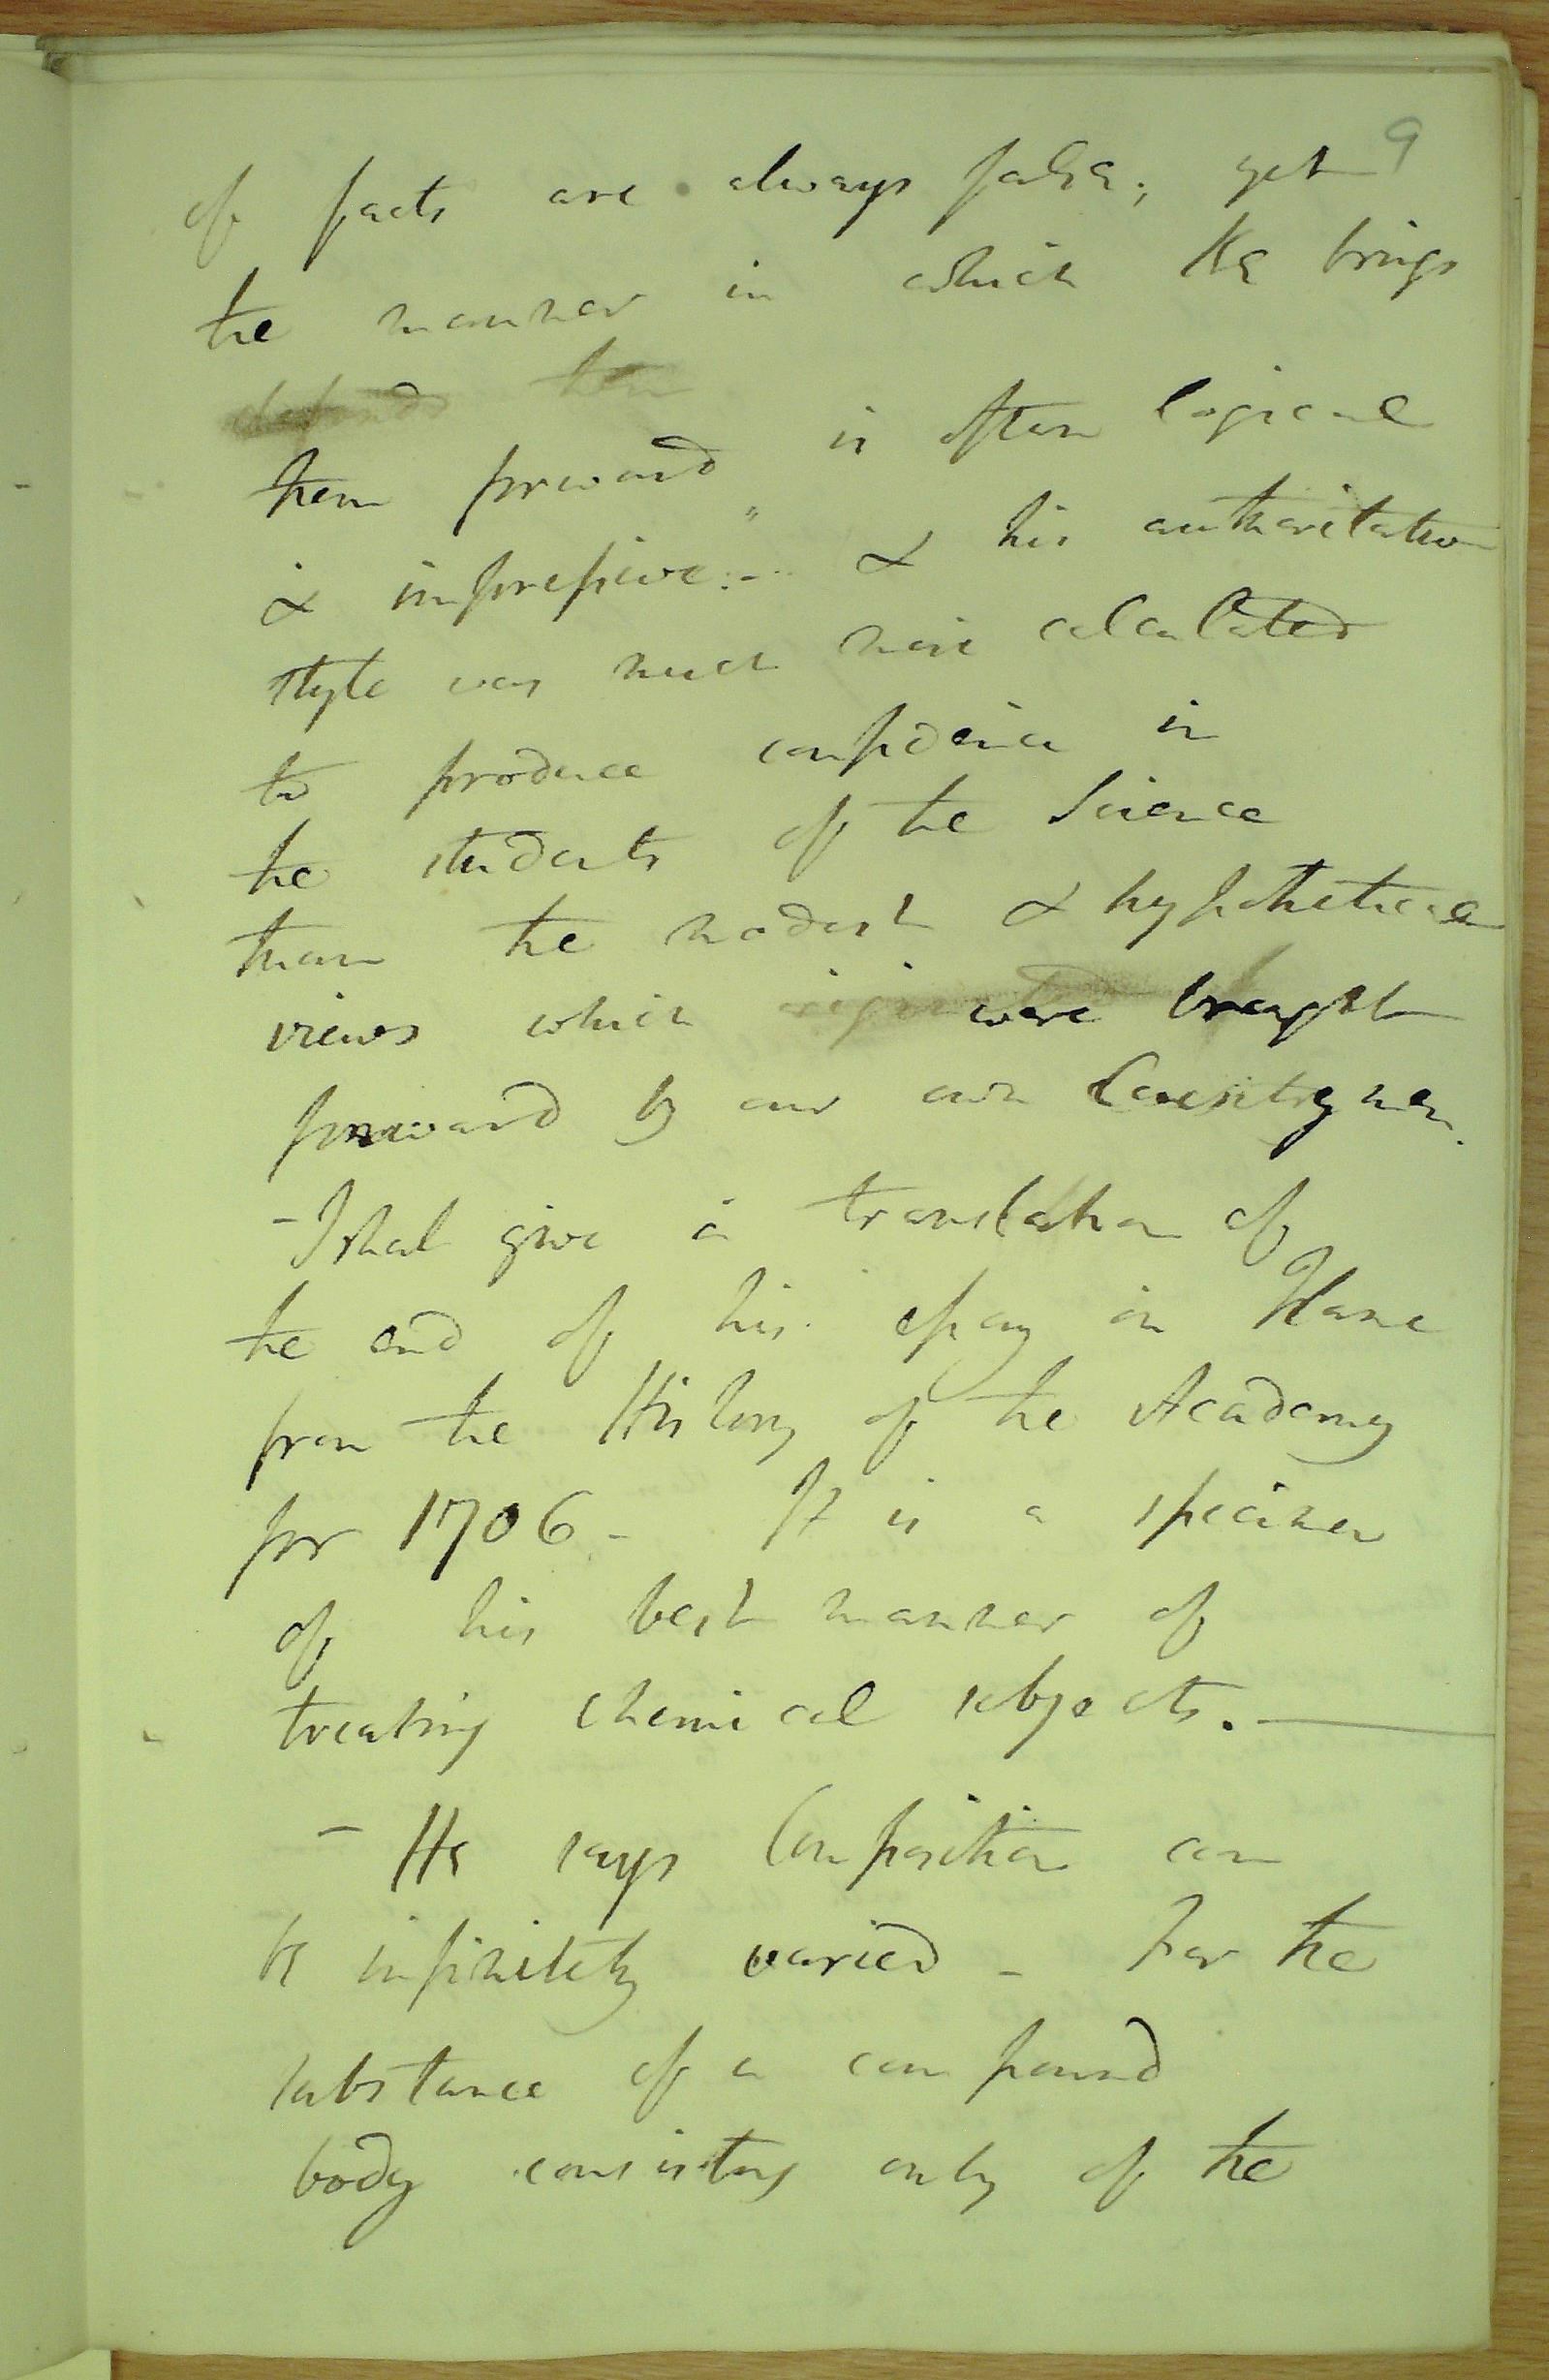 9
of facts are always false; yet
the manner in which He brings
defends them
them forward is often logical
& impressive:- & his authoritative
style was much more calculated
to produce confidence in
the students of the Science
than the modest & hypothetical
views which were brought
forward by our own Countrymen.
- I shal give a translation of
the end of his essay on Flame
from the History of the Academy
for 1706 - It is a specimen
of his best manner of
treating chemical subjects. —
- He says Composition can
be infinitely varied - For the
substance of a compound
body consisting only of the